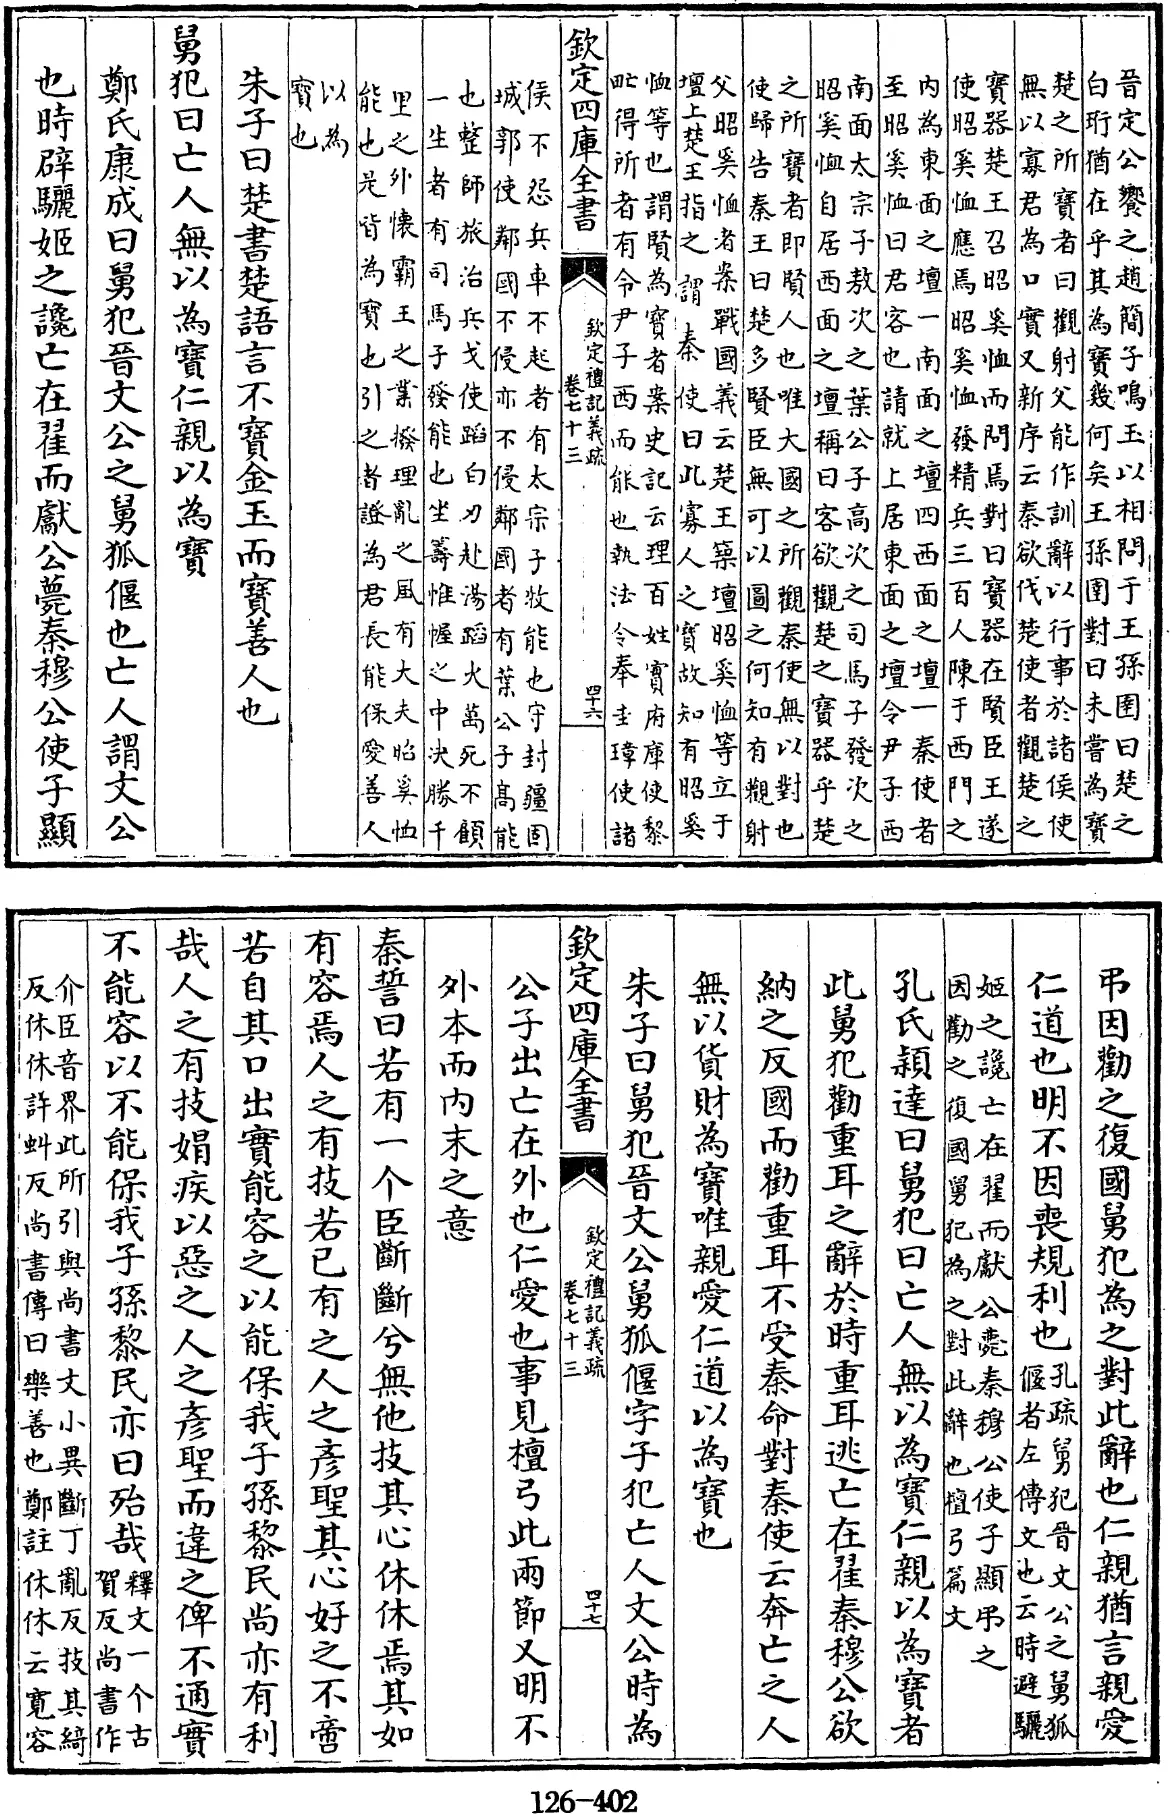 晉定公饗之趙簡子鳴玉以相問于王孫圉曰楚之
白珩猶在乎其為寶幾何矣王孫圉對曰未嘗為寶
楚之所寶者曰觀射父能作訓辭以行事於諸侯使
無以寡君為口實又新序云秦欲伐楚使者觀楚之
寶器楚王召昭奚恤而問焉對曰寶器在賢臣王遂
使昭奚恤應焉昭奚恤發精兵三百人陳于西門之
內為東面之壇一南面之壇四西面之壇一秦使者
至昭奚恤曰君客也請就上居東面之壇令尹子西
南面太宗子敖次之葉公子高次之司馬子發次之
昭奚恤自居西面之壇稱曰客欲觀楚之寶器乎楚
之所寶者即賢人也唯大國之所觀秦使無以對也
使歸告秦王曰楚多賢臣無可以圖之何知有觀射
父昭奚恤者案戰國義云楚王築壇昭奚恤等立于
壇上楚王指之謂秦使曰此寡人之寶故知有昭奚
恤等也謂賢為寶者案史記云理百姓實府庫使黎
甿得所者有令尹子西而能也執法令奉圭璋使諸
欽定四庫全書
欽定禮記義疏
卷七十三
四十六
侯不怨兵車不起者有太宗子牧能也守封疆固
城郭使鄰國不侵亦不侵鄰國者有葉公子高能
也整師旅治兵戈使蹈白刃赴湯蹈火萬死不顧
一生者有司馬子發能也坐籌惟幄之中決勝千
里之外懷霸王之業撥理亂之風有大夫昭奚恤
能也是皆為寶也引之者證為君長能保愛善人
以為
寶也
朱子曰楚書楚語言不寶金玉而寶善人也
舅犯曰亡人無以為寶仁親以為寶
鄭氏康成曰舅犯晉文公之舅狐偃也亡人謂文公
也時辟驪姬之讒亡在翟而獻公薨秦穆公使子顯
弔因勸之復國舅犯為之對此辭也仁親猶言親愛
仁道也明不因喪規利也
孔疏舅犯晉文公之舅狐
偃者左傳文也云時避驪
姬之讒亡在翟而獻公薨秦穆公使子顯弔之
因勸之復國舅犯為之對此辭也檀弓篇文
孔氏穎達曰舅犯曰亡人無以為寶仁親以為寶者
此舅犯勸重耳之辭於時重耳逃亡在翟秦穆公欲
納之反國而勸重耳不受秦命對秦使云奔亡之人
無以貨財為寶唯親愛仁道以為寶也
朱子曰舅犯晉文公舅狐偃字子犯亡人文公時為
欽定四庫全書
欽定禮記義疏
卷七十三
四十七
公子出亡在外也仁愛也事見檀弓此兩節又明不
外本而內末之意
秦誓曰若有一个臣斷斷兮無他技其心休休焉其如
有容焉人之有技若已有之人之彥聖其心好之不啻
若自其口出實能容之以能保我子孫黎民尚亦有利
哉人之有技娟疾以惡之人之彥聖而違之俾不通實
不能容以不能保我子孫黎民亦曰殆哉
釋文一个古
賀反尚書作
介臣音界此所引與尚書文小異斷丁亂反技其綺
反休休許虯反尚書傳曰樂善也鄭註休休云寬容
126-402